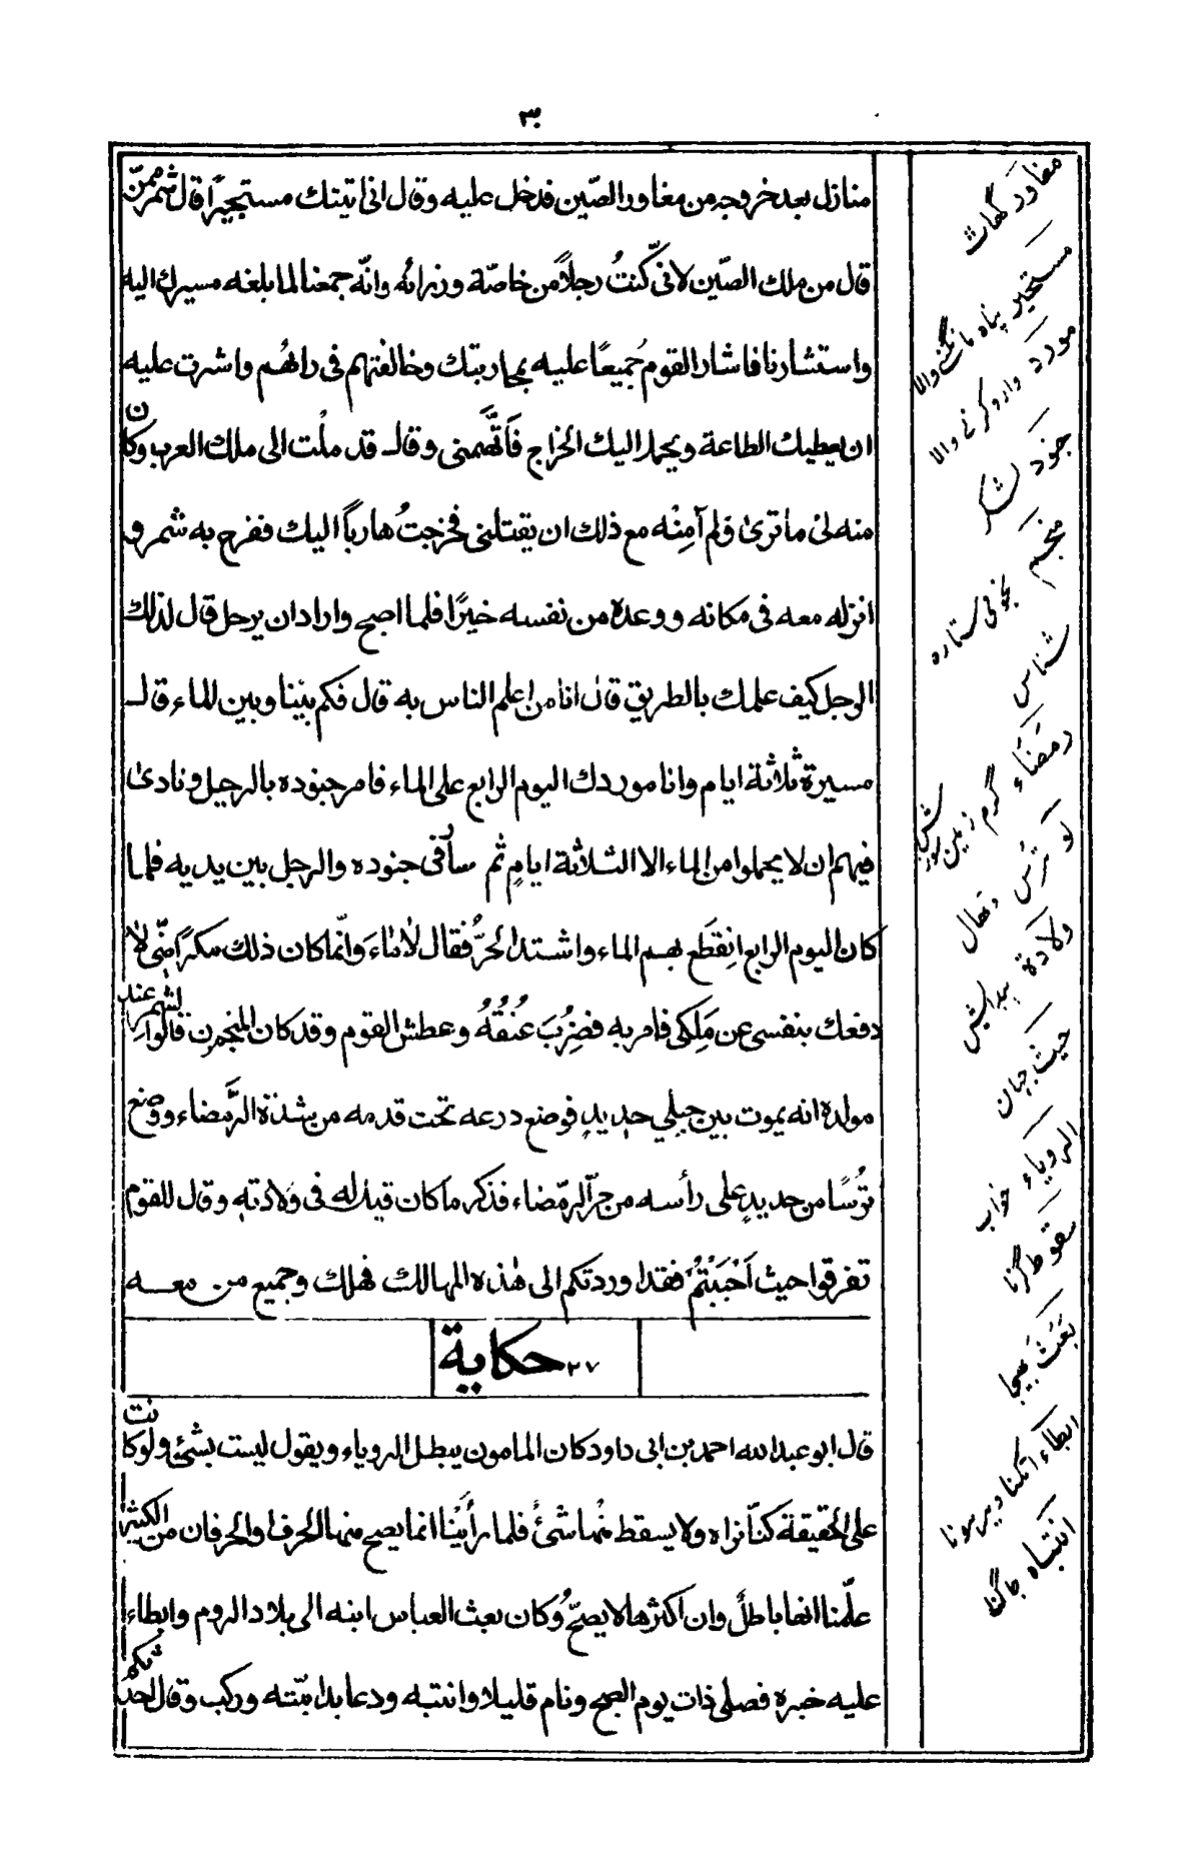 ٣٠
منازل بعد خروجه من مغاور الصّين فدخل عليه وقال انى اتيتك مستجيرًا قال شمر ممنّ
قال من ملك الصّين لانى كنتُ رجلًا من خاصّة وزرائه وانّه جمعنا لما بلغه مسيرك اليه
واستشارنا فاشار القوم جميعًا عليه بمحاربتك وخالفتهم فى رائهُم واشرت عليه
ان يعطيك الطاعة ويحمل اليك الخراج فاَتَّهمنى وقال قد ملْت الى ملك العرب وكان
منه لى ما ترىٰ ولم آمِنْه مع ذلك ان يقتلنى فخرجتُ هاربًا اليك ففرح به شمر و
انزله معه فى مكانه ووعده من نفسه خيرًا فلما اصبح واراد ان يرحل قال لذلك
الرجل كيف علمك بالطريق قال انا من اعلم الناس به قال فكم بيننا وبين الماء قال
مسيرة ثلاثة ايام وانا موردك اليوم الرابع على الماء فامر جنوده بالرحيل ونادىٰ
فيهم ان لا يحملوا من الماء الا الثلاثة ايامٍ ثم سار فى جنوده والرجل بين يديه فلما
كان اليوم الرابع انِقَطَع بهم الماء واشتد الحرُّ فقال لا ماءَ وانّما كان ذلك مكرًا منّى لا
دفعك بنفسى عن مَلِكى فامر به فضِرُبَ عنُقُهُ وعطش القوم وقد كان المنجمون قالوا لشمر عند
مولده انه يموت بين جبلي حديدٍ فوضع درعه تحت قدمه من شدة الرَّمضاء ووضع
تُرُسًا من حديدٍ على رأسه من حرّ الرمّضاء فذكر ما كان قيل له فى ولادته وقال للقوم
تفرقوا حيث اَحْبَبْتُمْ فقد اوردتكم الى هٰذه المهالك فهلك وجميع من معه
حكاية ٢٧
قال ابو عبد الله احمد بن ابى داود كان المامون يبطل الروياء ويقول ليست بشئ ولو كانت
على الحقيقة كنّا نراه ولا يسقط منْها شئٌ فلما رأَيْنا انما يصح منها الحرف والحرفان من الكثير
علّمنا انها باطلٌ وان اكثرها لا يصحّ وكان بعث العباس ابنه الى بلاد الروم وابطاء
عليه خبره فصلى ذات يوم الصبح ونام قليلا وانتبه ودعا بدابّته وركب وقال احدثكم
مغاور گھاٹ
مستجير پناه مانگنے والا
مورد وارد كرنے والا
جنود لشكر
منجم نجومى ستاره
شناس
رمضاء گرم زمين
ترس ڈھال
ولادة پيدائش
حيث جہان
الروياء خواب
سقوط گرنا
بعث بھيجا
ابطاء اٹكنا دير ہونا
انتباه جاگنا